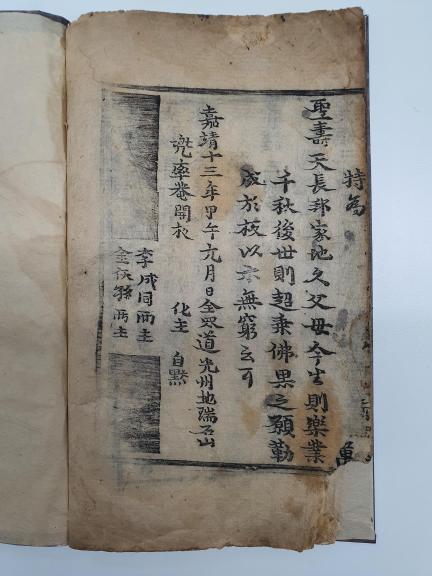 特為
萬
聖壽天長邦家地久父母今生則樂業
千秋後世則超乘佛果之願勒
成於板以無窮云
嘉靖十三年甲午月日全羅道光州地瑞石山
兜率菴開板 化主 自黙
李成同兩主
金孫兩主